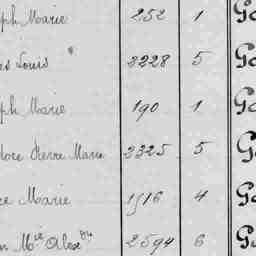 ph Marie 252 1 Go
es Louis * 3228 5 Go
ph Marie 190 1 Go
dore Pierre Marie 3325 5 Go
re Marie 1516 4 Go
n Mie Alexdre 2594 6 Go